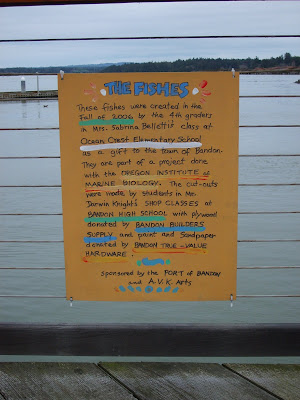 THE FISHES
These fishes were created in the
Fall of 2006 by the 4th graders
in Mrs. Sabrina Belletti's class at
Ocean Crest Elementary School
as a gift to the town of Bandon.
They are part of a project done
with the OREGON INSTITUTE of
MARINE BIOLOGY. The cut-outs
were made by students in Mr.
Darwin Knight's SHOP CLASSES at
BANDON HIGH SCHOOL with plywood
donated by BANDON BUILDERS
SUPPLY and paint and Sandpaper
donated by BANDON TRUE-VALUE
HARDWARE.
sponsored by the PORT of BANDON
and A.V.K. Arts